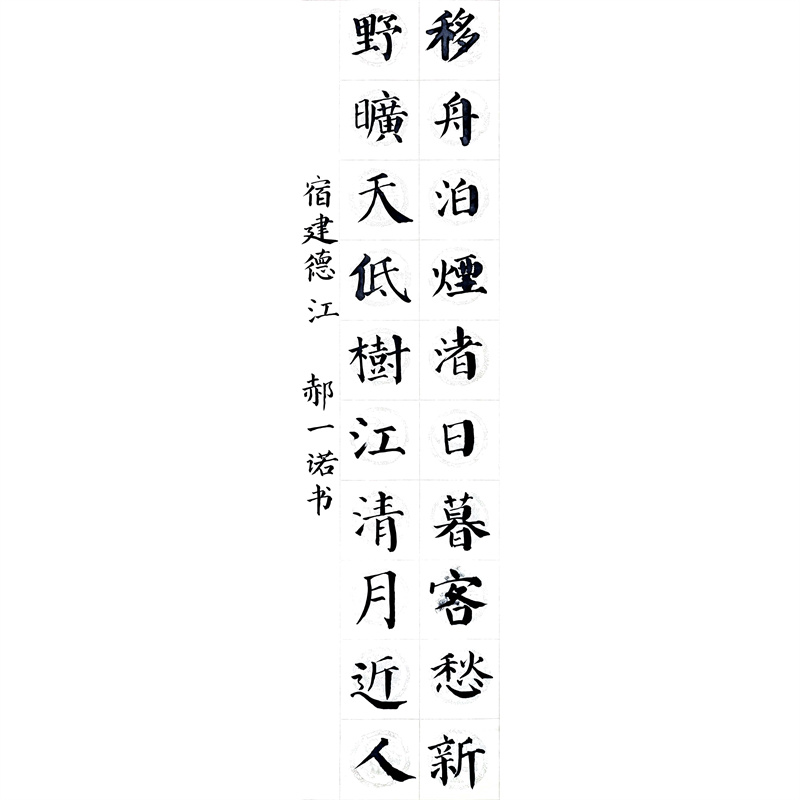 移舟泊煙渚日暮客愁新
野曠天低樹江清月近人
宿建德江 郝一诺书